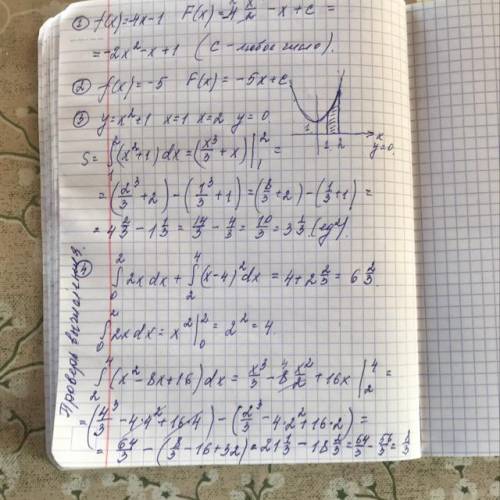 ① f(x)=-4x-1 F(x)=-4 x²/2 - x + c =
= -2x² - x + 1 (c - любое число).
② f(x) = -5 F(x) = -5x + c
③ y = x²+1 x=1 x=2 y=0
1 2 x
y=0
S = ∫₁² (x²+1) dx = (x³/3 + x) |₁² =
= (2³/3 + 2) - (1³/3 + 1) = (8/3 + 2) - (1/3 + 1) =
= 4 2/3 - 1 1/3 = 14/3 - 4/3 = 10/3 = 3 1/3 (ед²).
Проверь вычисления.
④ ∫₀² 2x dx + ∫₂⁴ (x-4)² dx = 4 + 2 2/3 = 6 2/3.
∫₀² 2x dx = x² |₀² = 2² = 4.
∫₂⁴ (x² - 8x + 16) dx = x³/3 - 8 x²/2 + 16x |₂⁴ =
= (4³/3 - 4·4² + 16·4) - (2³/3 - 4·2² + 16·2) =
= 64/3 - (8/3 - 16 + 32) = 21 1/3 - 18 2/3 = 64/3 - 56/3 = 8/3